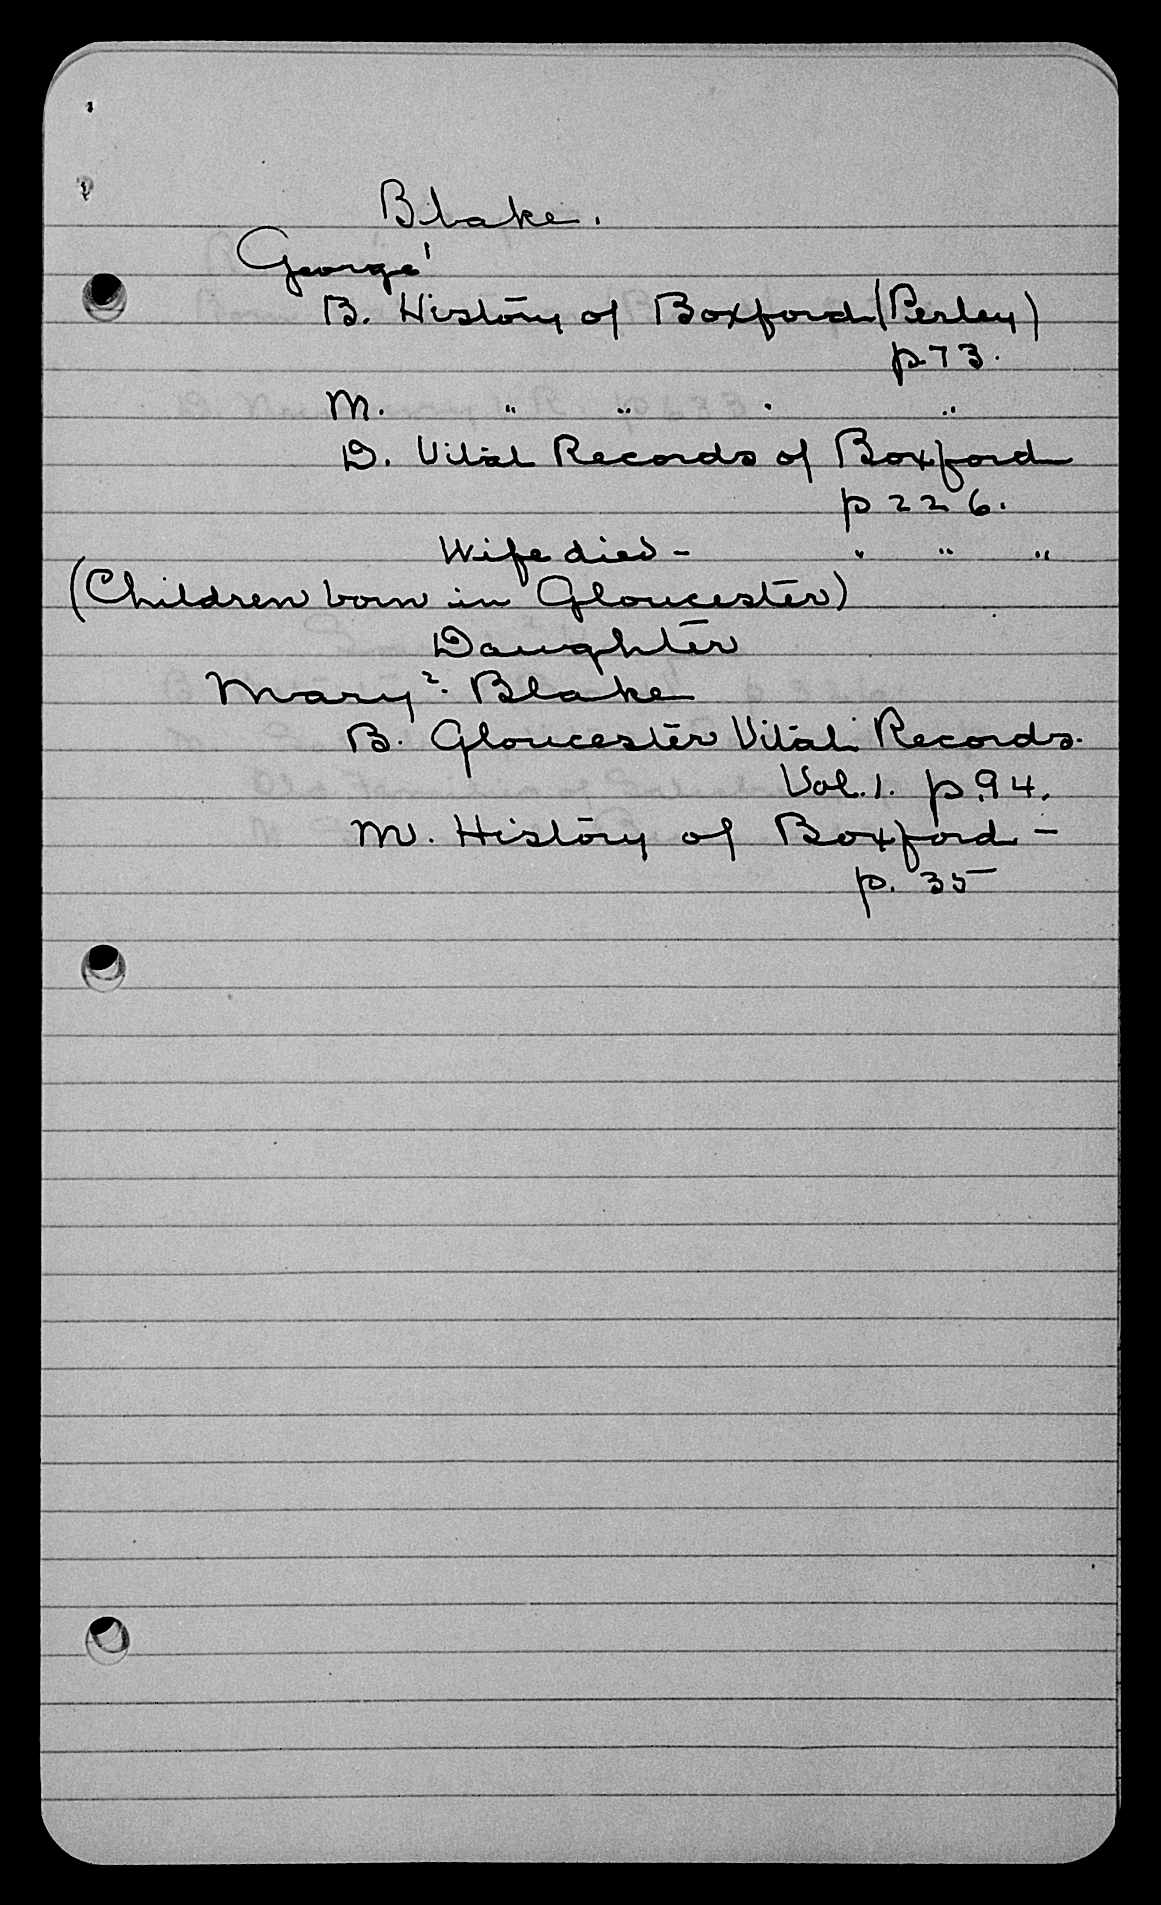 Blake.
George¹
B. History of Boxford (Perley)
p 73.
M. " " " "
D. Vital Records of Boxford
p 226.
Wife died - " " "
(Children born in Gloucester)
Daughter
Mary². Blake
B. Gloucester Vital Records.
Vol. 1. p. 94.
M. History of Boxford -
p. 35